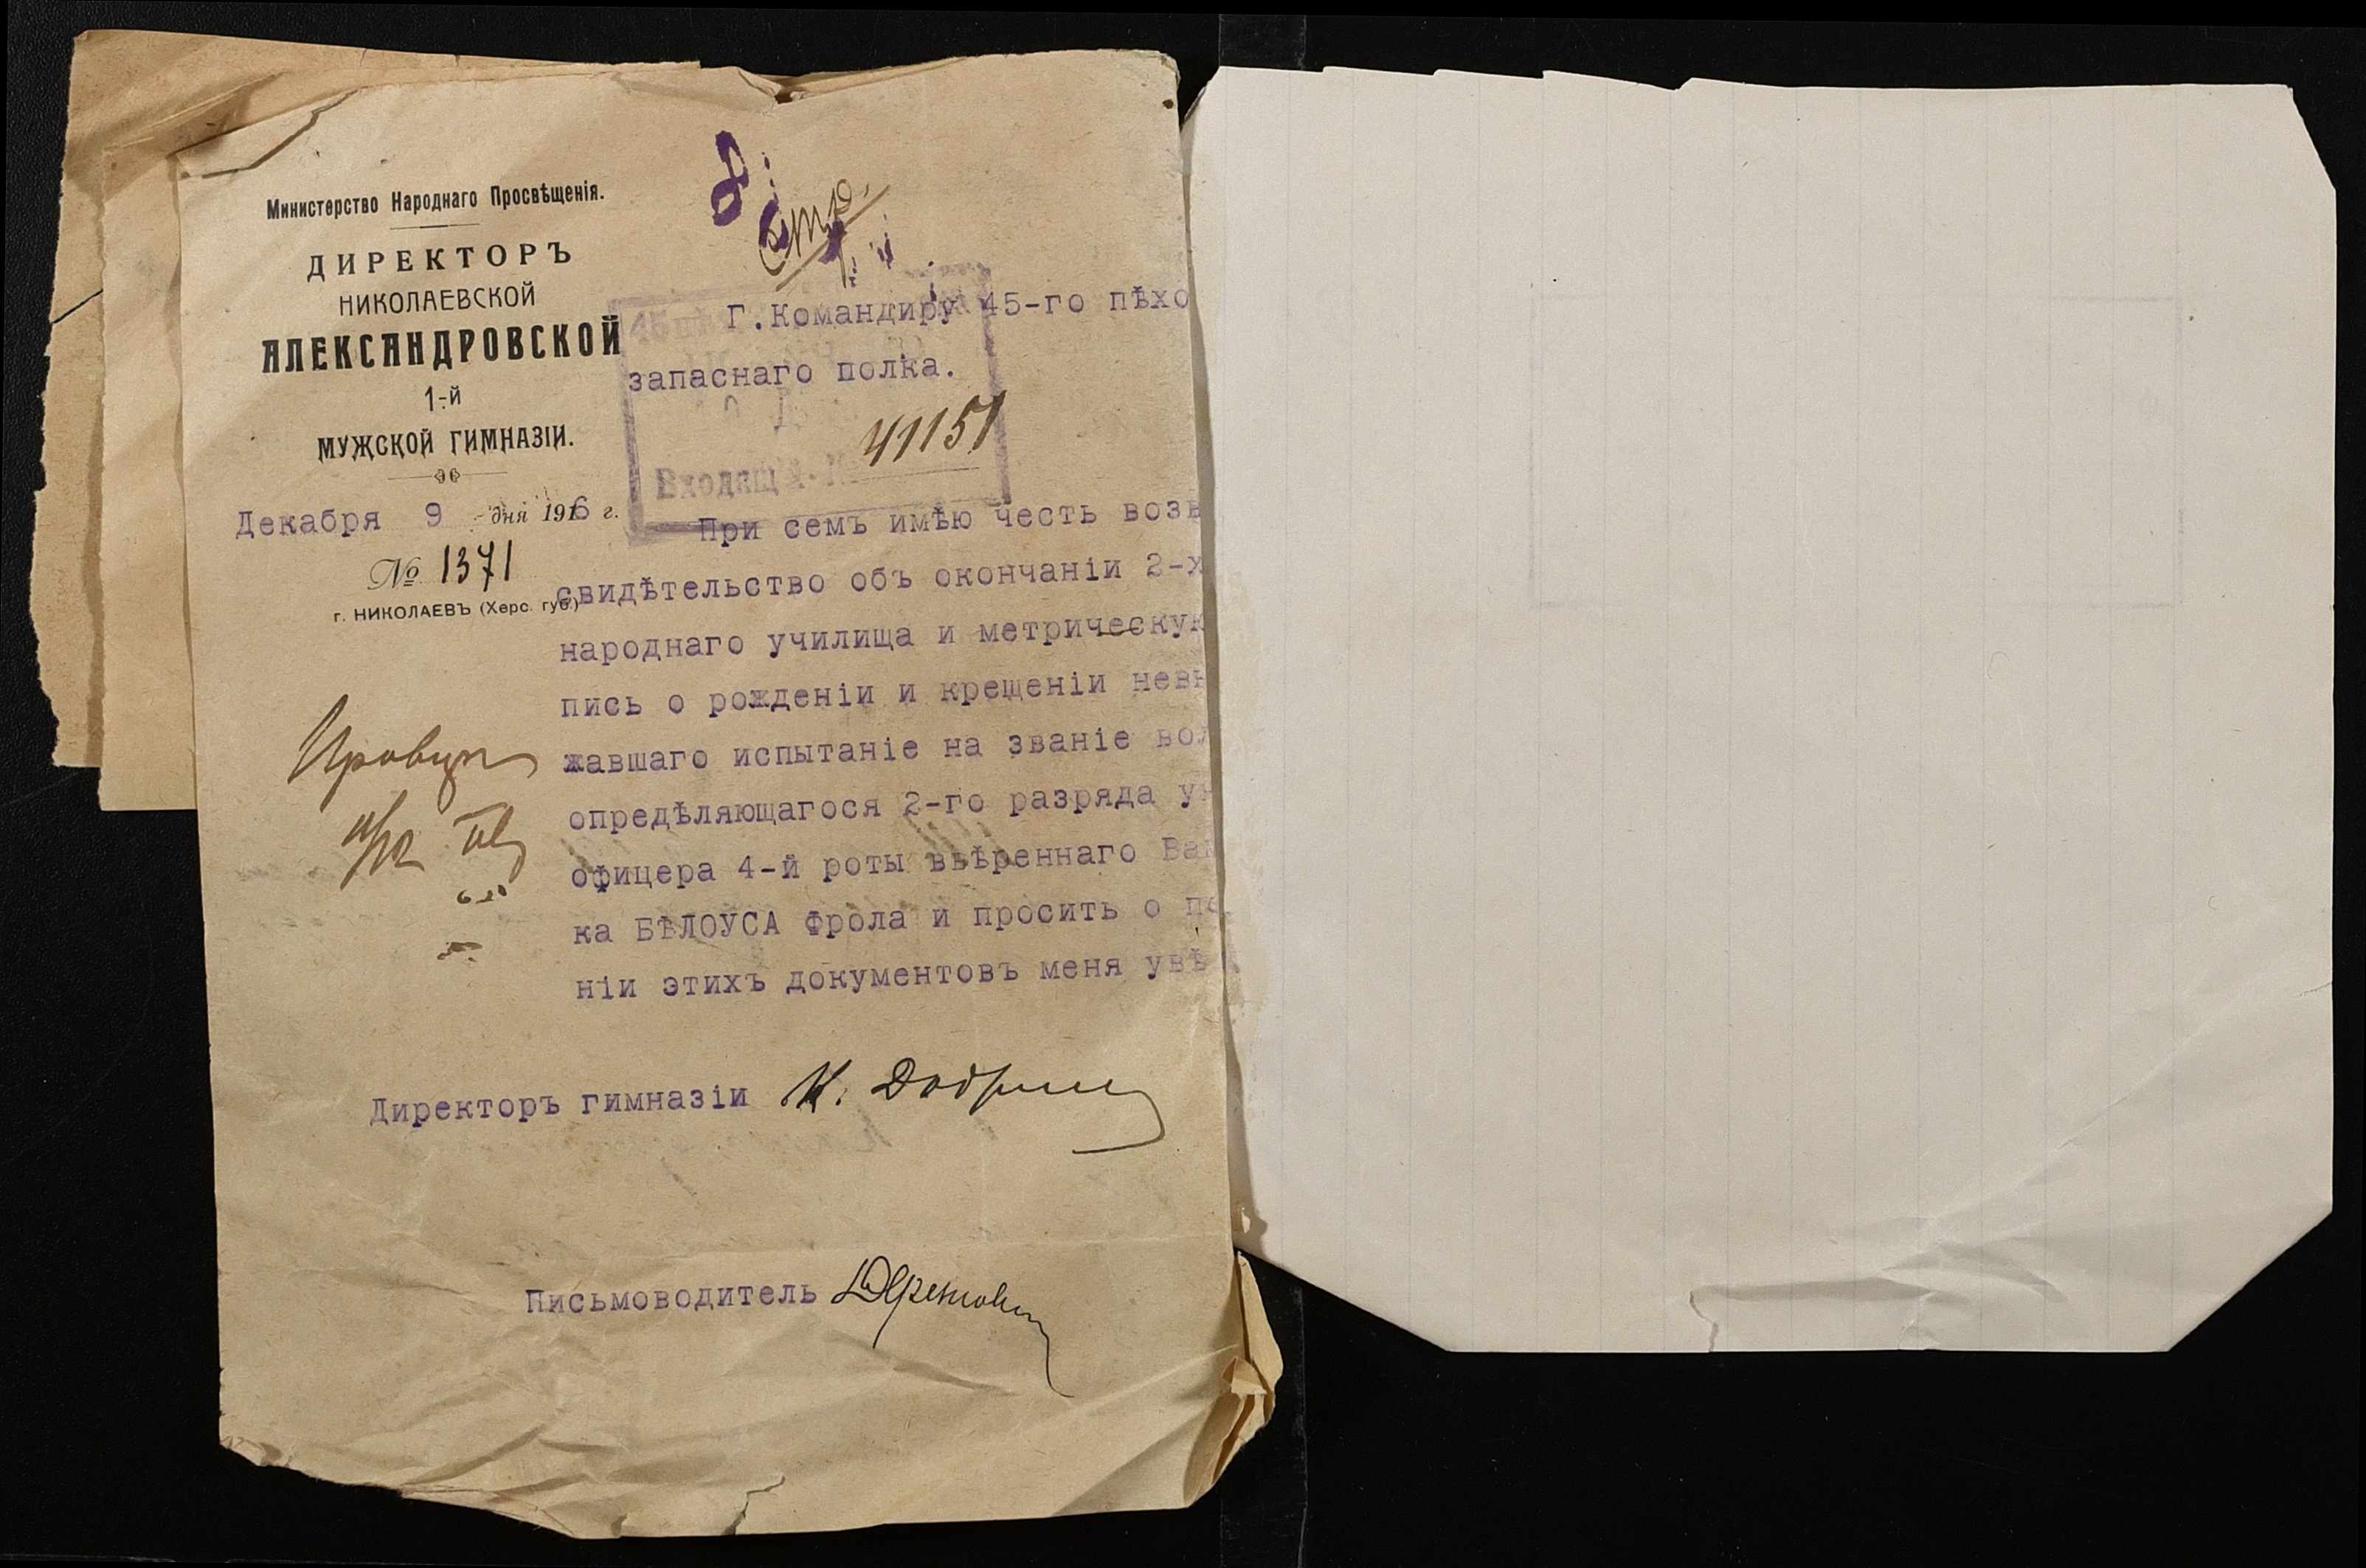 Министерство Народнаго Просвѣщенія.
ДИРЕКТОРЪ
НИКОЛАЕВСКОЙ
АЛЕКСАНДРОВСКОЙ
1-й
МУЖСКОЙ ГИМНАЗІИ.
Декабря 9 дня 1916 г.
№ 1371
г. НИКОЛАЕВЪ (Херс. губ.)
Г.Командиру 45-го пѣхо
запаснаго полка.
41151
Входящ
При семъ имѣю честь возв
свидѣтельство объ окончаніи 2-х
народнаго училища и метрическую
пись о рожденіи и крещеніи невы
жавшаго испытаніе на званіе вол
опредѣляющагося 2-го разряда ун
офицера 4-й роты ввѣреннаго Вам
ка БѢЛОУСА Фрола и просить о по
ніи этихъ документовъ меня увѣ
Директоръ гимназіи
Письмоводитель